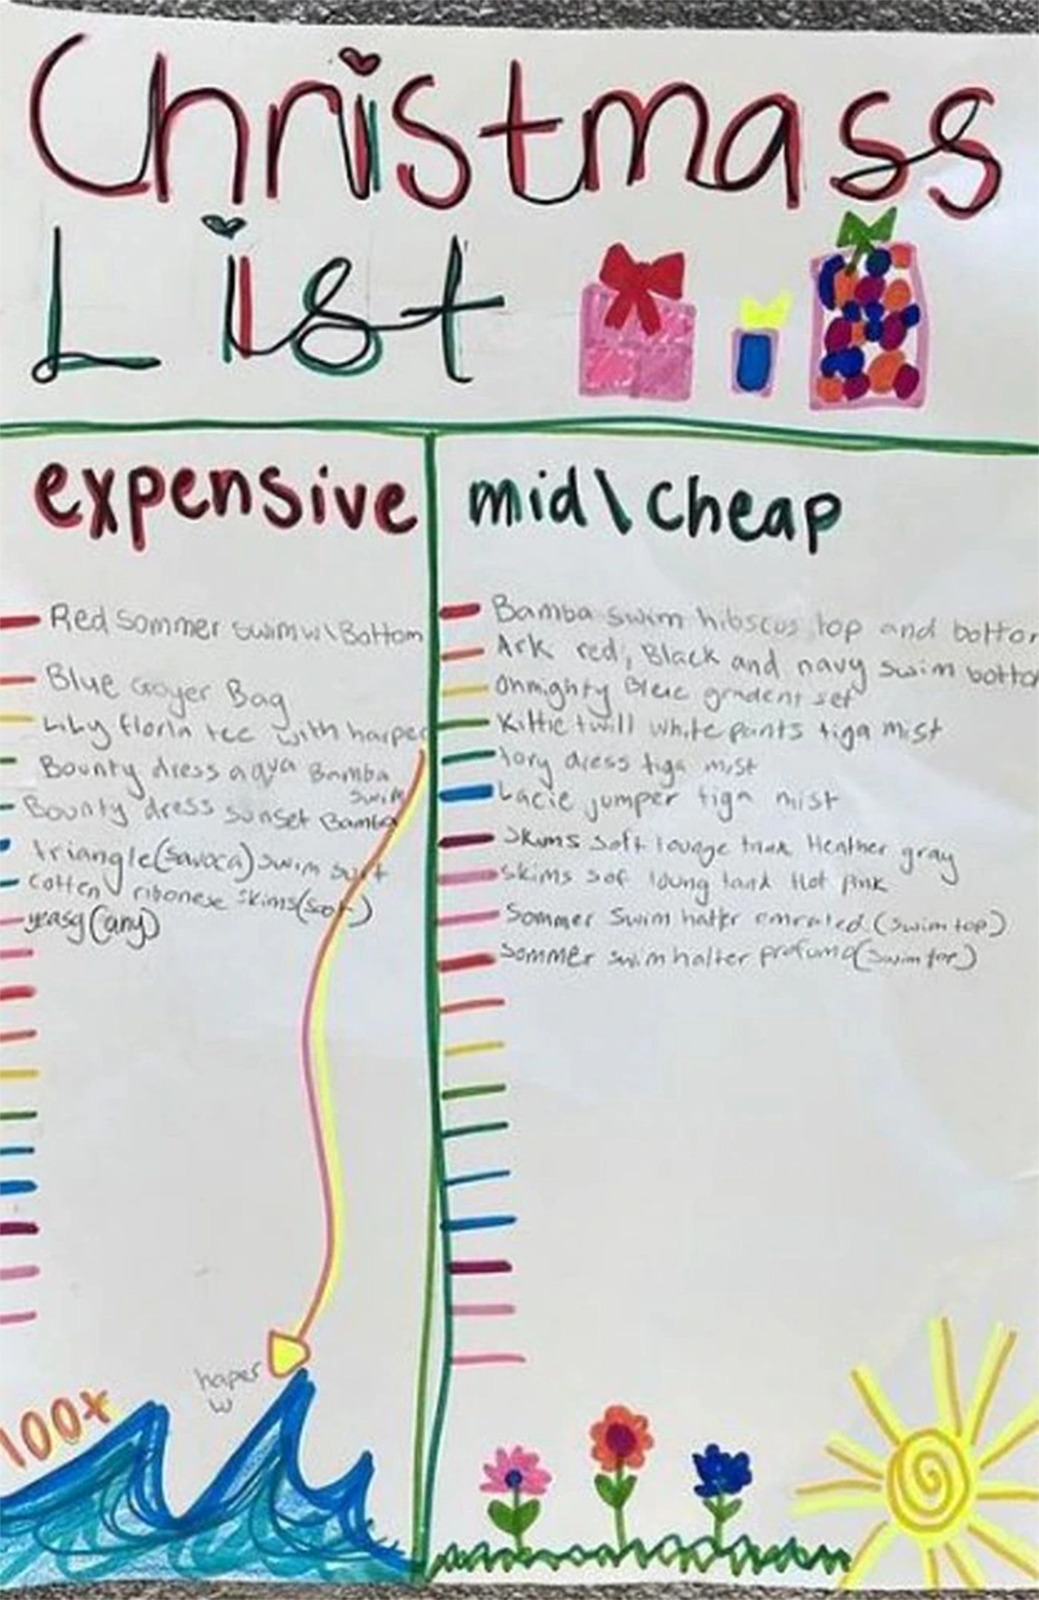 Christmass
List
expensive
Red Sommer swim w\ Bottom
Blue Goyer Bag
Lily florin tee with harper
Bounty dress aqya Bamba
swim
Bounty dress sunset Bamba
triangle (savoca) swim suit
cotten ribonese skims
yeasg (any)
haper
w
100x
mid\cheap
Bamba swim hibscus top and bottom
Ark red, Black and navy swim botto
Onmighty Bleue gradent set
Kittie twill white pants tiga mist
tory dress tiga mist
Lacie jumper tiga mist
Skims soft lounge tank Heather gray
skims sof loung tank Hot Pink
Sommer Swim halter emraled (swim top)
sommer swim halter profumo